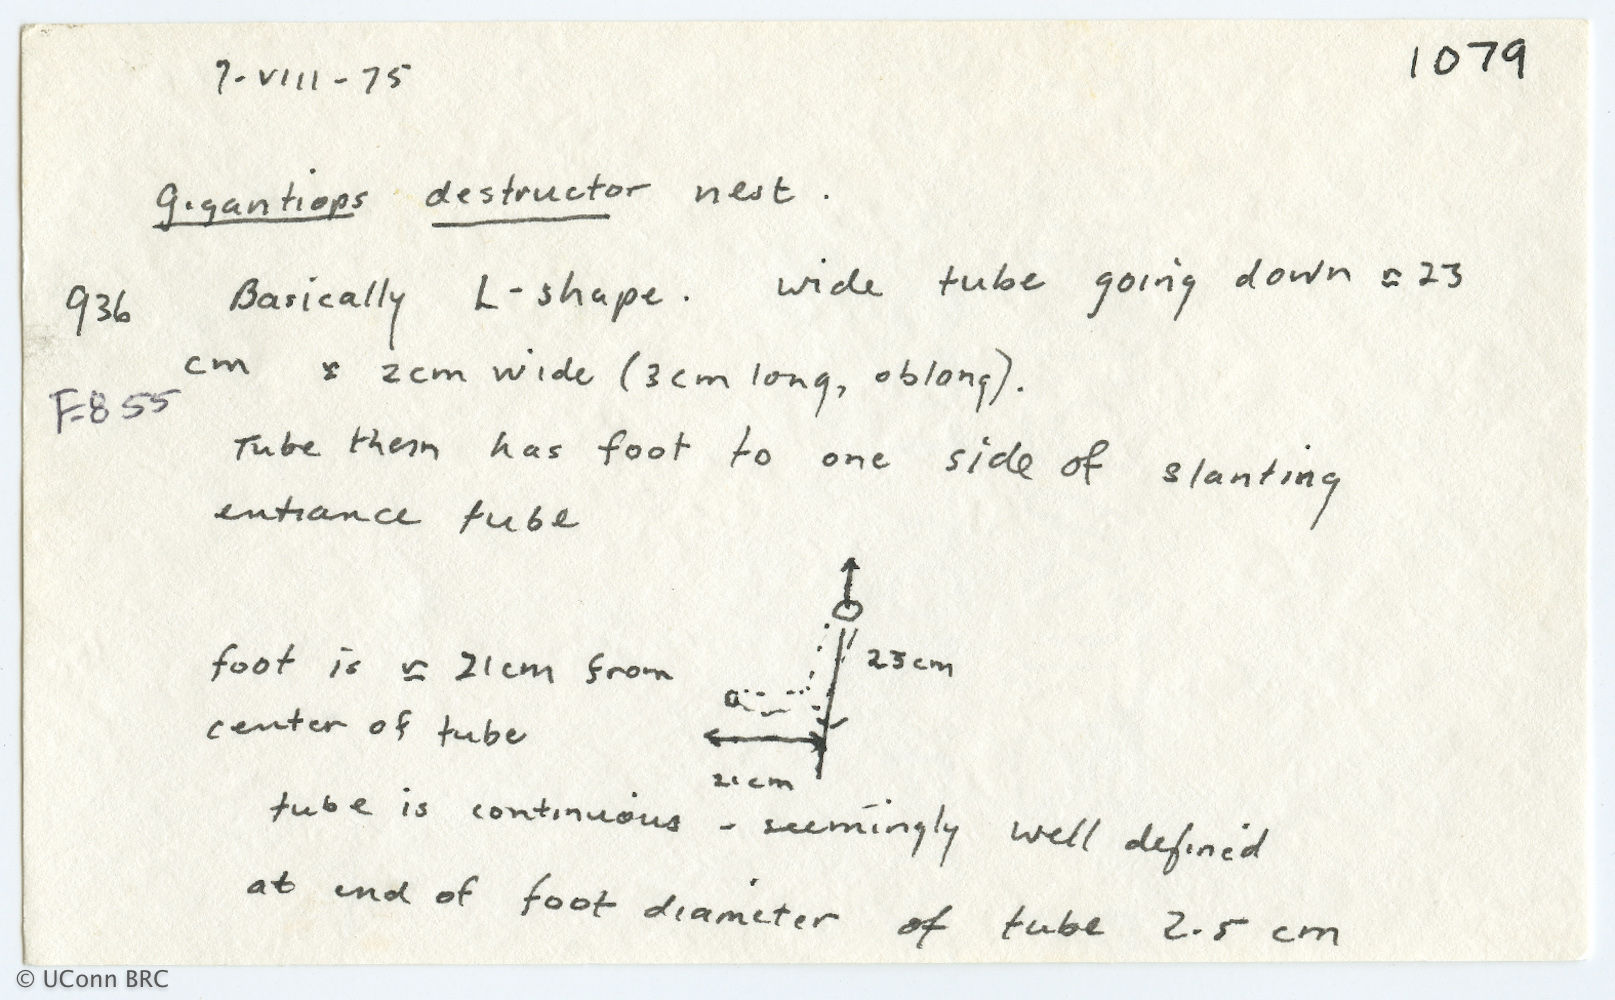 1079
7-VIII-75
Gigantiops destructor nest.
936 Basically L-shape. wide tube going down ≈ 23
cm x 2cm wide (3cm long, oblong).
F-855
Tube then has foot to one side of slanting
entrance tube
23cm
foot is ≈ 21cm from
center of tube
21cm
tube is continuous - seemingly well defined
at end of foot diameter of tube 2.5 cm
© UConn BRC